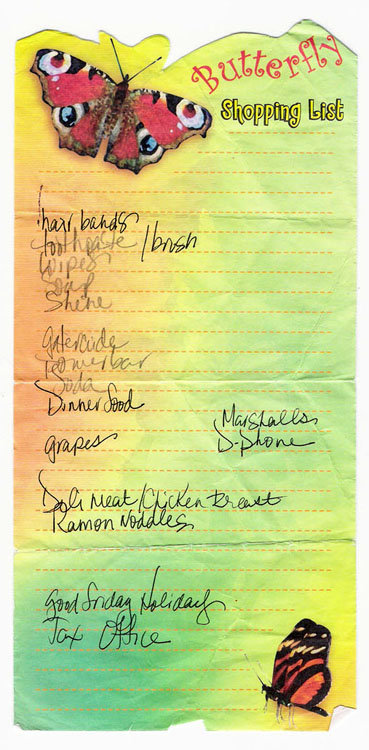 Butterfly
Shopping List
hair bands
toothpaste / brush
wipes
Soap
Shene
Gatercude
Powerbar
Soda
Dinner food
Marshalls
grapes
D-phone
Deli Meat/Chicken Breast
Ramon Noddles
Good Friday Holiday
Tax Office